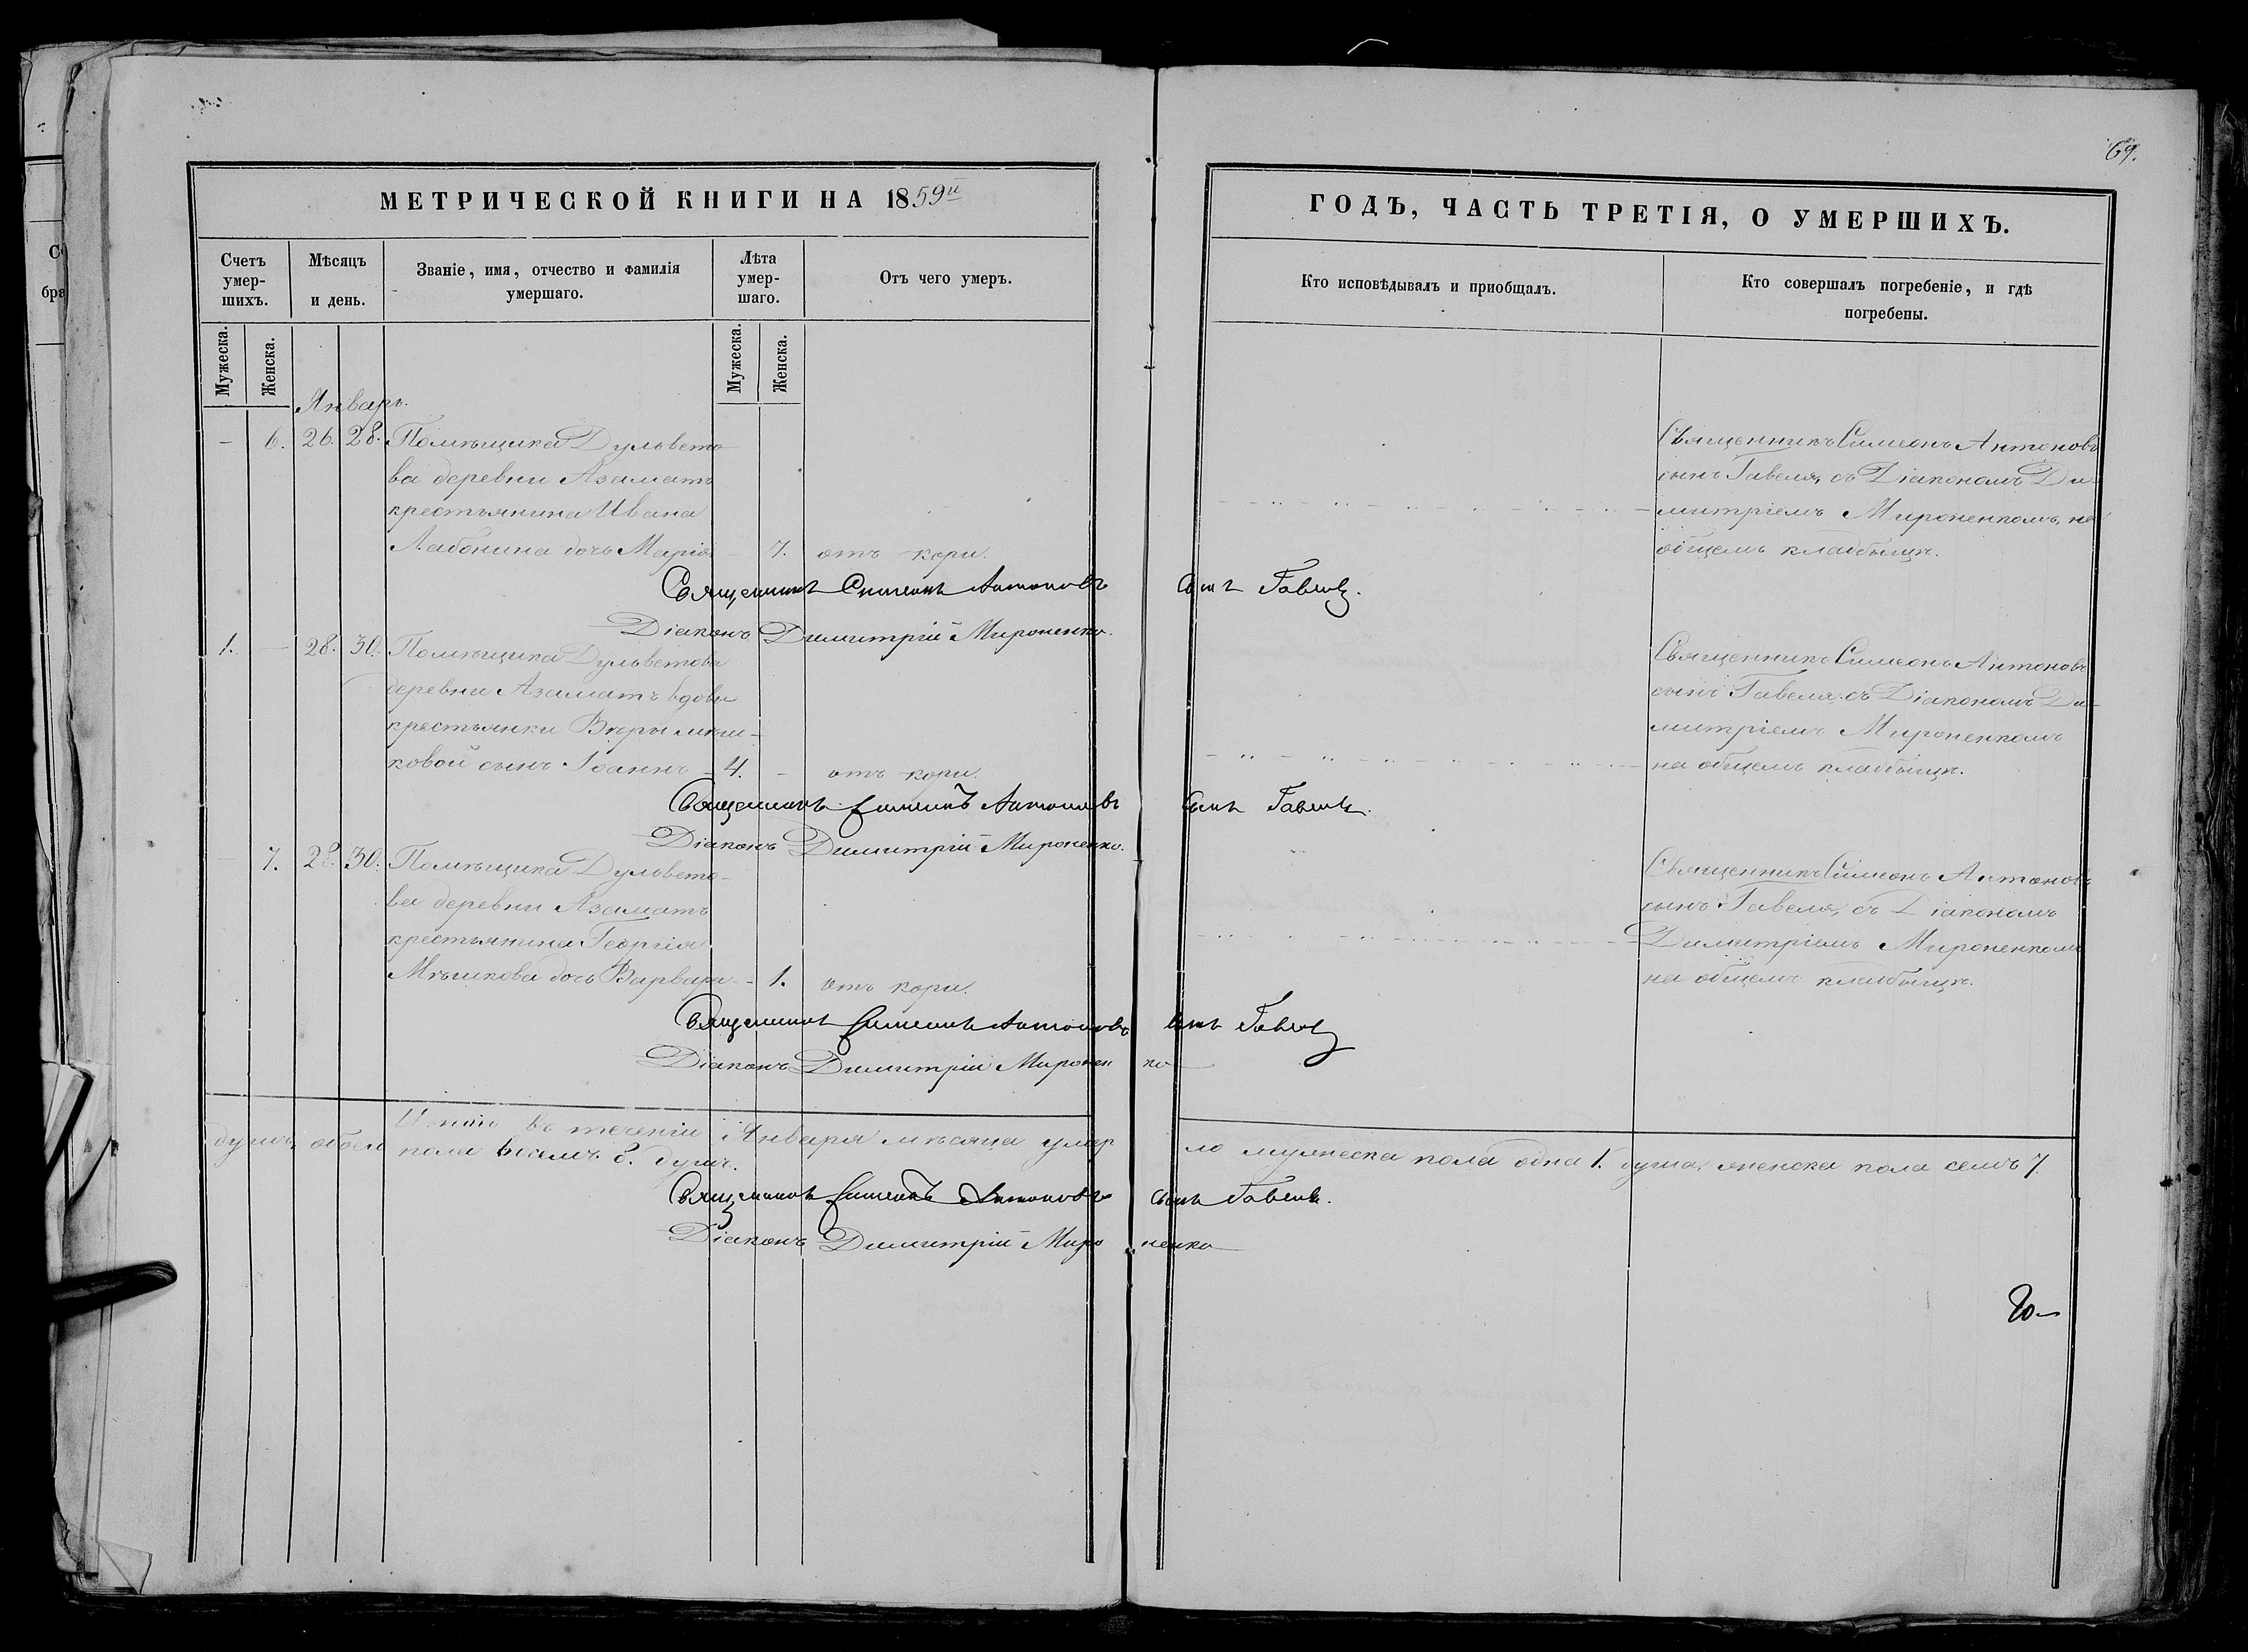 69.
МЕТРИЧЕСКОЙ КНИГИ НА 1859й
ГОДЪ, ЧАСТЬ ТРЕТІЯ, О УМЕРШИХЪ.
Счетъ умер-шихъ.
Мѣсяцъ и день.
Званіе, имя, отчество и фамилія умершаго.
Лѣта умер-шаго.
Отъ чего умеръ.
Кто исповѣдывалъ и приобщалъ.
Кто совершалъ погребеніе, и гдѣ погребены.
Мужеска.
Женска.
Мужеска.
Женска.
Январь.
– 6. 26. 28. Помѣщика Дульвето
ва деревни Азаматъ
крестьянина Ивана
Лабонина дочь Марія – 7. отъ кори.
Священникъ Симеонъ Антоновъ
сынъ Гавеля, съ Діакономъ Ди
митріемъ Мироненкомъ, на
общемъ кладбищѣ.
Священникъ Симеонъ Антоновъ сынъ Гавеля.
Діаконъ Димитрій Мироненко.
1. – 28. 30. Помѣщика Дульветова
деревни Азаматъ вдовы
крестьянки Вѣры мѣш-
ковой сынъ Іоаннъ – 4. – отъ кори.
Священникъ Симеонъ Антоновъ
сынъ Гавеля съ Діакономъ Ди-
митріемъ Мироненкомъ
на общемъ кладбищѣ.
Священникъ Симеонъ Антоновъ сынъ Гавеля.
Діаконъ Димитрій Мироненко.
– 7. 28. 30. Помѣщика Дульвето-
ва деревни Азаматъ
крестьянина Георгія
Мѣшкова дочь Варвара – 1. отъ кори.
Священникъ Симеонъ Антоновъ
сынъ Гавеля, съ Діакономъ
Димитріемъ Мироненкомъ
на общемъ кладбищѣ.
Священникъ Симеонъ Антоновъ сынъ Гавеля
Діаконъ Димитрій Миронен ко
Итого въ теченіи Января мѣсяца умер ло мужеска пола одна 1. душа, женска пола семь 7
душъ, обоего пола восемь 8. душъ.
Священникъ Симеонъ Антоновъ сынъ Гавеля.
Діаконъ Димитрій Миро ненко